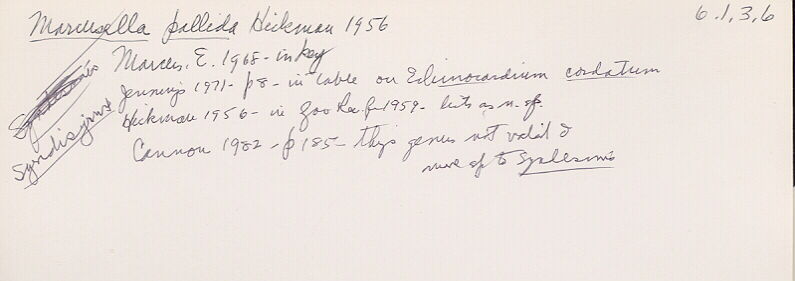 Marcusella pallida Hickman 1956
6.1,3,6
Marcus, E. 1968 - in key
Jennings 1971 - p8 - in table on Echinocardium cordatum
Hickman 1956 - in Zoo Rec for 1959 - lists as n. sp.
Cannon 1982 - p 185 - thys genus not valid &
move sp to Syndesmis
Syndisyrinx